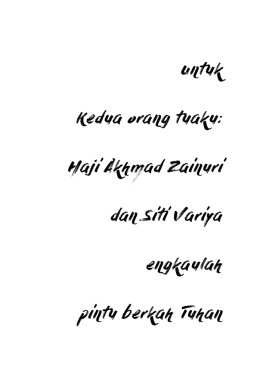 untuk
Kedua orang tuaku:
Haji Akhmad Zainuri
dan Siti Variya
engkaulah
pintu berkah Tuhan